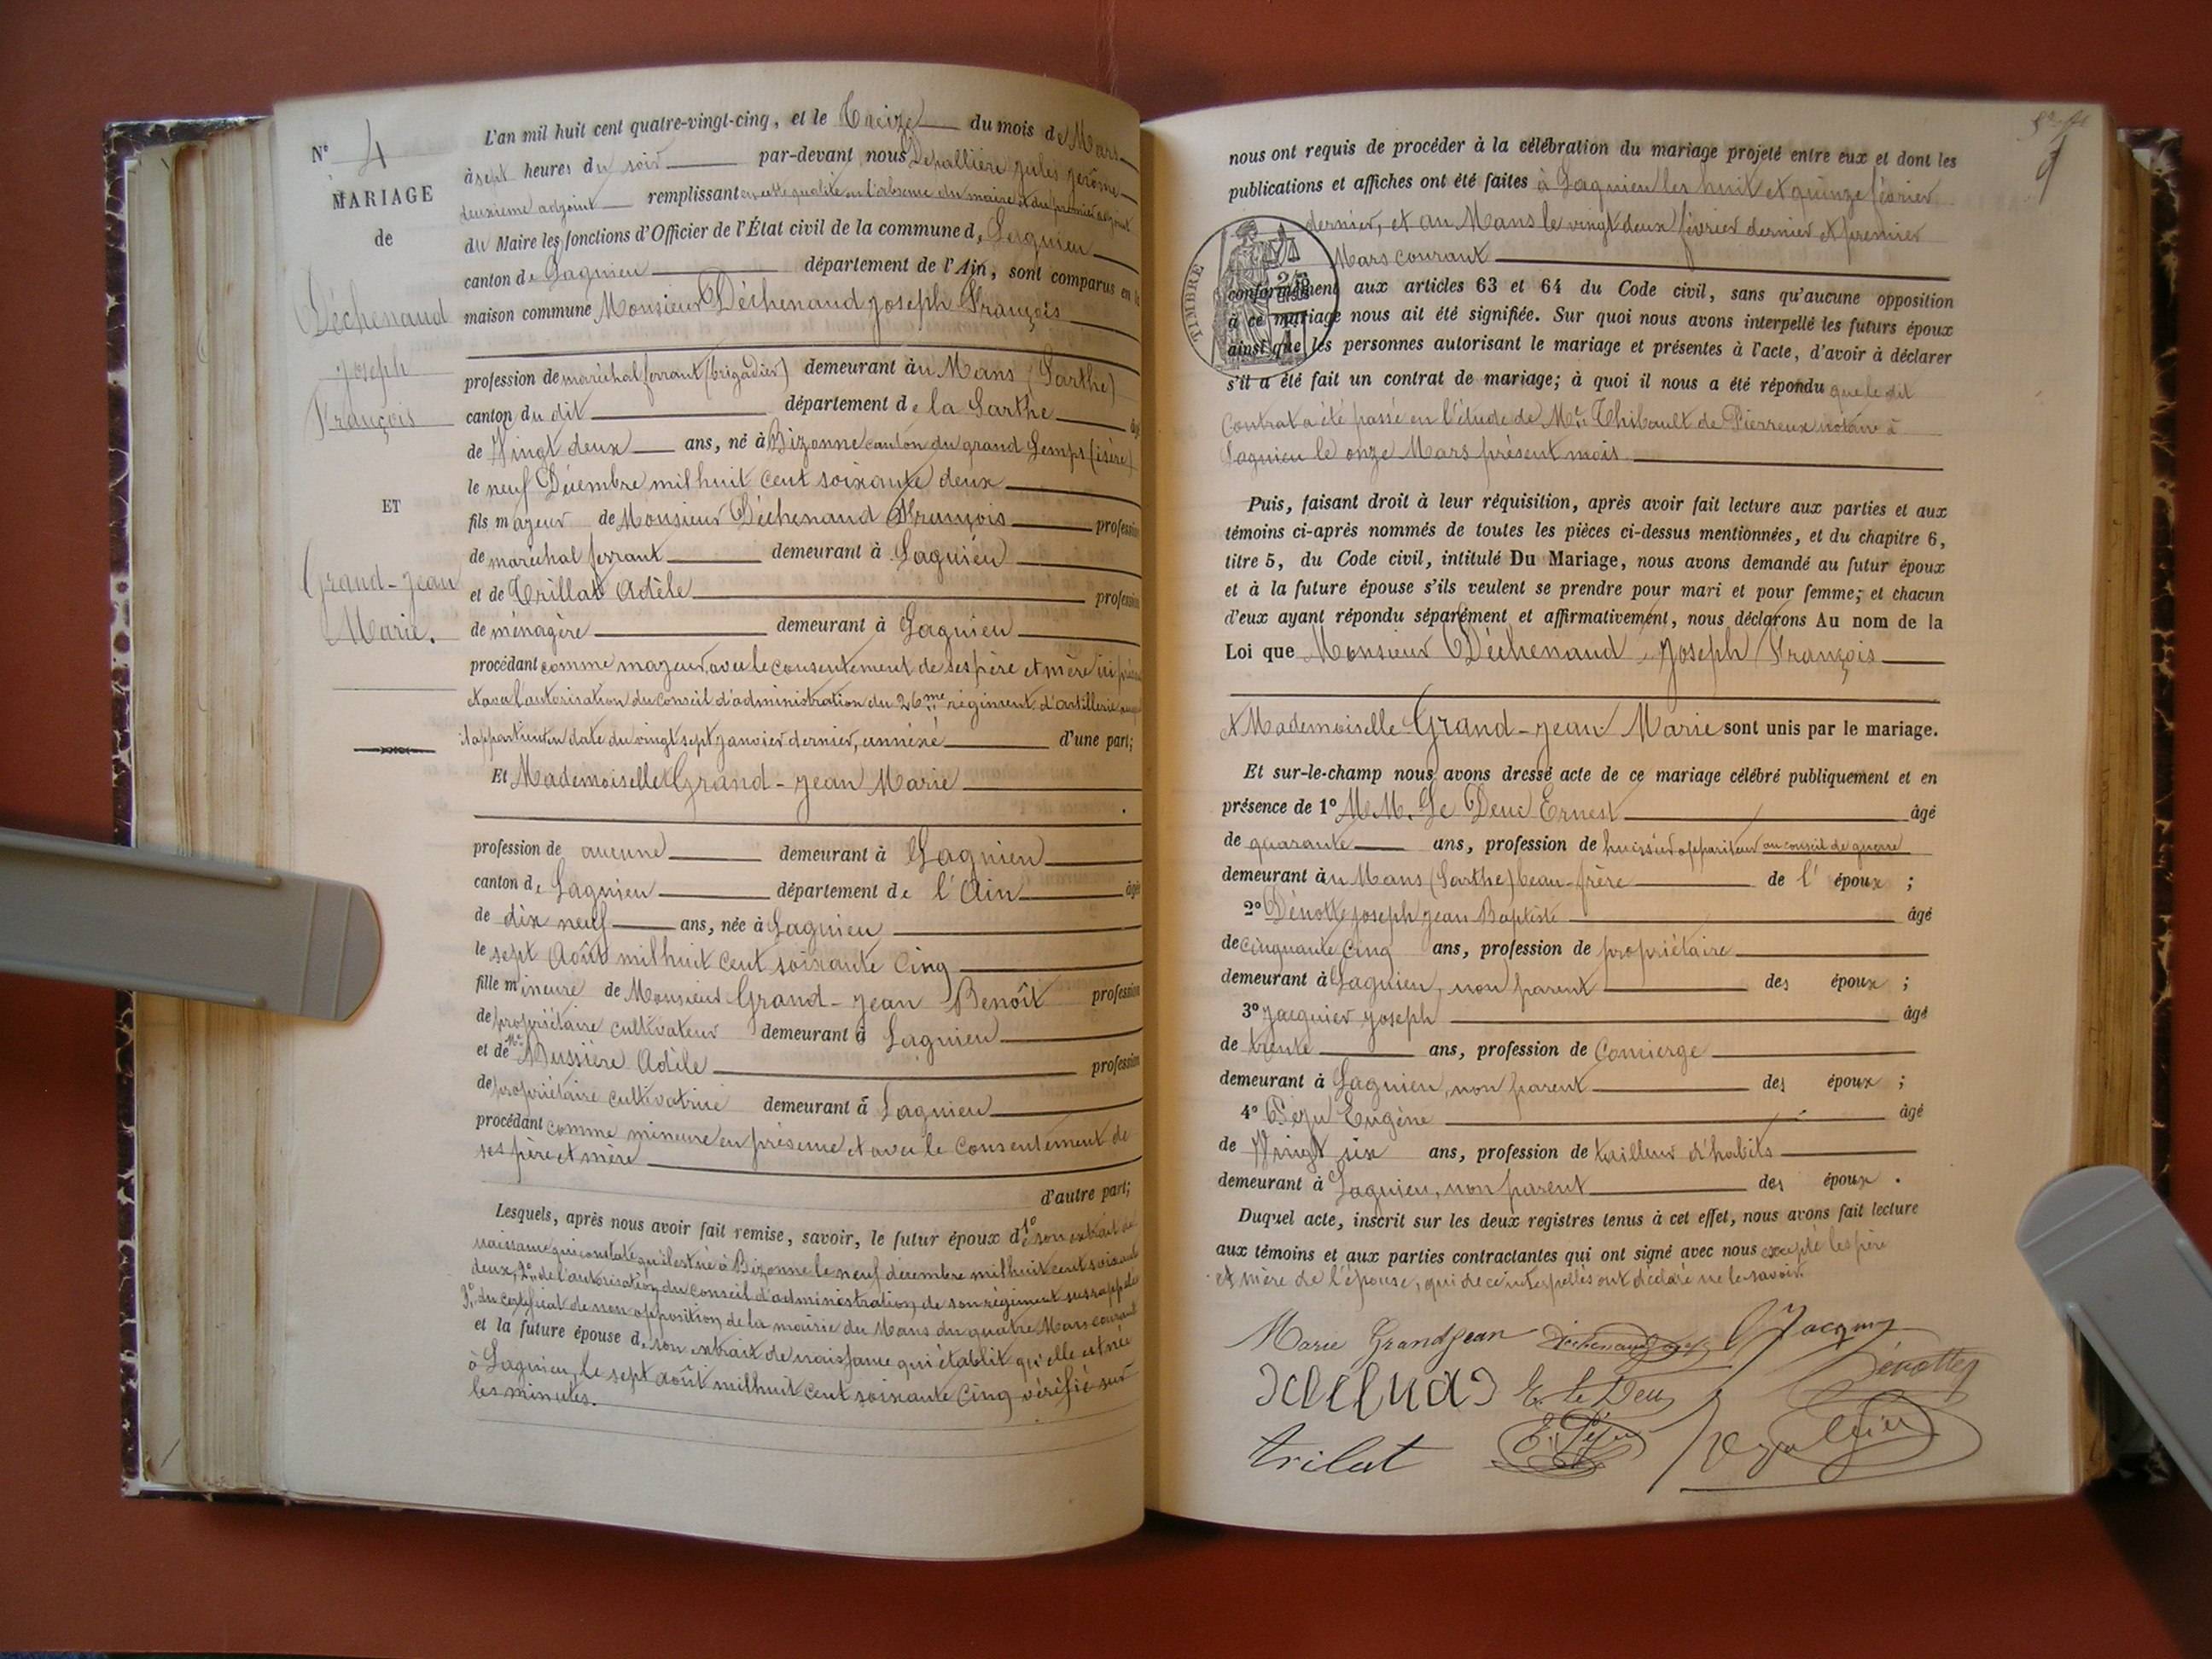 N° 4
MARIAGE
de
Déchenaud
Joseph
François
ET
Grand-Jean
Marie.
L'an mil huit cent quatre-vingt-cinq, et le Treize du mois de Mars
à sept heures du soir par-devant nous Depallière Jules Jérôme
deuxième adjoint remplissant en cette qualité en l'absence du maire et du premier adjoint
du Maire les fonctions d'Officier de l'État civil de la commune d, Lagnieu
canton de Lagnieu département de l'Ain, sont comparus en la
maison commune Monsieur Déchenaud Joseph François
profession de maréchal ferrant (brigadier) demeurant au Mans (Sarthe)
canton du dit département de la Sarthe âgé
de Vingt deux ans, né à Bizonne canton du grand Lemps (isère)
le neuf Décembre mil huit cent soixante deux
fils majeur de Monsieur Déchenaud François profession
de maréchal ferrant demeurant à Lagnieu
et de Trillat Adèle profession
de ménagère demeurant à Lagnieu
procédant comme majeur, avec le consentement de ses père et mère ici
et avec l'autorisation du conseil d'administration du 26me régiment d'artillerie
il appartient en date du vingt sept janvier dernier, annéxé d'une part;
Et Mademoiselle Grand-Jean Marie
profession de aucune demeurant à Lagnieu
canton de Lagnieu département de l'Ain âgée
de dix neuf ans, née à Lagnieu
le sept Août mil huit cent soixante cinq
fille mineure de Monsieur Grand-Jean Benoît profession
de propriétaire cultivateur demeurant à Lagnieu
et de Me Mussière Adèle profession
de propriétaire cultivatrice demeurant à Lagnieu
procédant comme mineure en présence et avec le consentement de
ses père et mère
d'autre part;
Lesquels, après nous avoir fait remise, savoir, le futur époux d, 1° son extrait de
naissance qui constate qu'il est né à Bizonne le neuf décembre mil huit cent soixante
deux, 2° de l'autorisation du Conseil d'administration de son régiment susrappelé
3° du certificat de non opposition de la mairie du Mans du quatre Mars courant
et la future épouse d, son extrait de naissance qui établit qu'elle est née
à Lagnieu, le sept août mil huit cent soixante cinq vérifié sur
les minutes.
nous ont requis de procéder à la célébration du mariage projeté entre eux et dont les
publications et affiches ont été faites à Lagnieu les huit et quinze février
dernier, et au Mans le vingt deux février dernier et premier
Mars courant
TIMBRE
conformément aux articles 63 et 64 du Code civil, sans qu'aucune opposition
à ce mariage nous ait été signifiée. Sur quoi nous avons interpellé les futurs époux
ainsi que les personnes autorisant le mariage et présentes à l'acte, d'avoir à déclarer
s'il a été fait un contrat de mariage; à quoi il nous a été répondu que le dit
Contrat a été passé en l'étude de Me Thibault de Pierreux notaire à
Lagnieu le onze Mars présent mois
Puis, faisant droit à leur réquisition, après avoir fait lecture aux parties et aux
témoins ci-après nommés de toutes les pièces ci-dessus mentionnées, et du chapitre 6,
titre 5, du Code civil, intitulé Du Mariage, nous avons demandé au futur époux
et à la future épouse s'ils veulent se prendre pour mari et pour femme; et chacun
d'eux ayant répondu séparément et affirmativement, nous déclarons Au nom de la
Loi que Monsieur Déchenaud Joseph François
et Mademoiselle Grand-Jean Marie sont unis par le mariage.
Et sur-le-champ nous avons dressé acte de ce mariage célébré publiquement et en
présence de 1° M.M. Le Deuc Ernest âgé
de quarante ans, profession de huissier appariteur au conseil de guerre
demeurant au Mans (Sarthe) beau-frère de l' époux ;
2° Dénotte Joseph Jean Baptiste âgé
de cinquante cinq ans, profession de propriétaire
demeurant à Lagnieu, non parent des époux ;
3° Jacquier Joseph âgé
de trente ans, profession de Concierge
demeurant à Lagnieu, non parent des époux ;
4° Péju Eugène âgé
de Vingt six ans, profession de tailleur d'habits
demeurant à Lagnieu, non parent des époux .
Duquel acte, inscrit sur les deux registres tenus à cet effet, nous avons fait lecture
aux témoins et aux parties contractantes qui ont signé avec nous excepté les père
et mère de l'épouse, qui de ce interpellés ont déclaré ne le savoir.
Marie Grandjean
E. Le Deuc
trilat
E. Péju